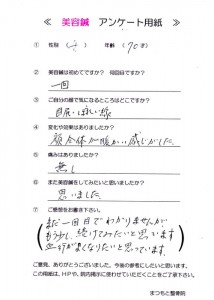 ≪ 美容鍼 アンケート用紙 ≫
① 性別 ( 女 ) 年齢 ( 70才 )
② 美容鍼は初めてですか? 何回目ですか?
一回
③ ご自分の顔で気になるところはどこですか?
目尻、ほほ、
④ 変化や効果はありましたか?
顔全体が暖かい感じがした。
⑤ 痛みはありましたか?
無し
⑥ また美容鍼をしてみたいと思いますか?
思いました。
⑦ ご感想をお書き下さい。
まだ一回目でわかりませんが
もう少し、続けてみたいと思います
血行が良くなりたいと思っています。
ご意見、ありがとうございました。今後の参考にしたいと思います。
この用紙は、HPや、院内掲示に使わせていただくことをご了承下さい。
まつもと整骨院